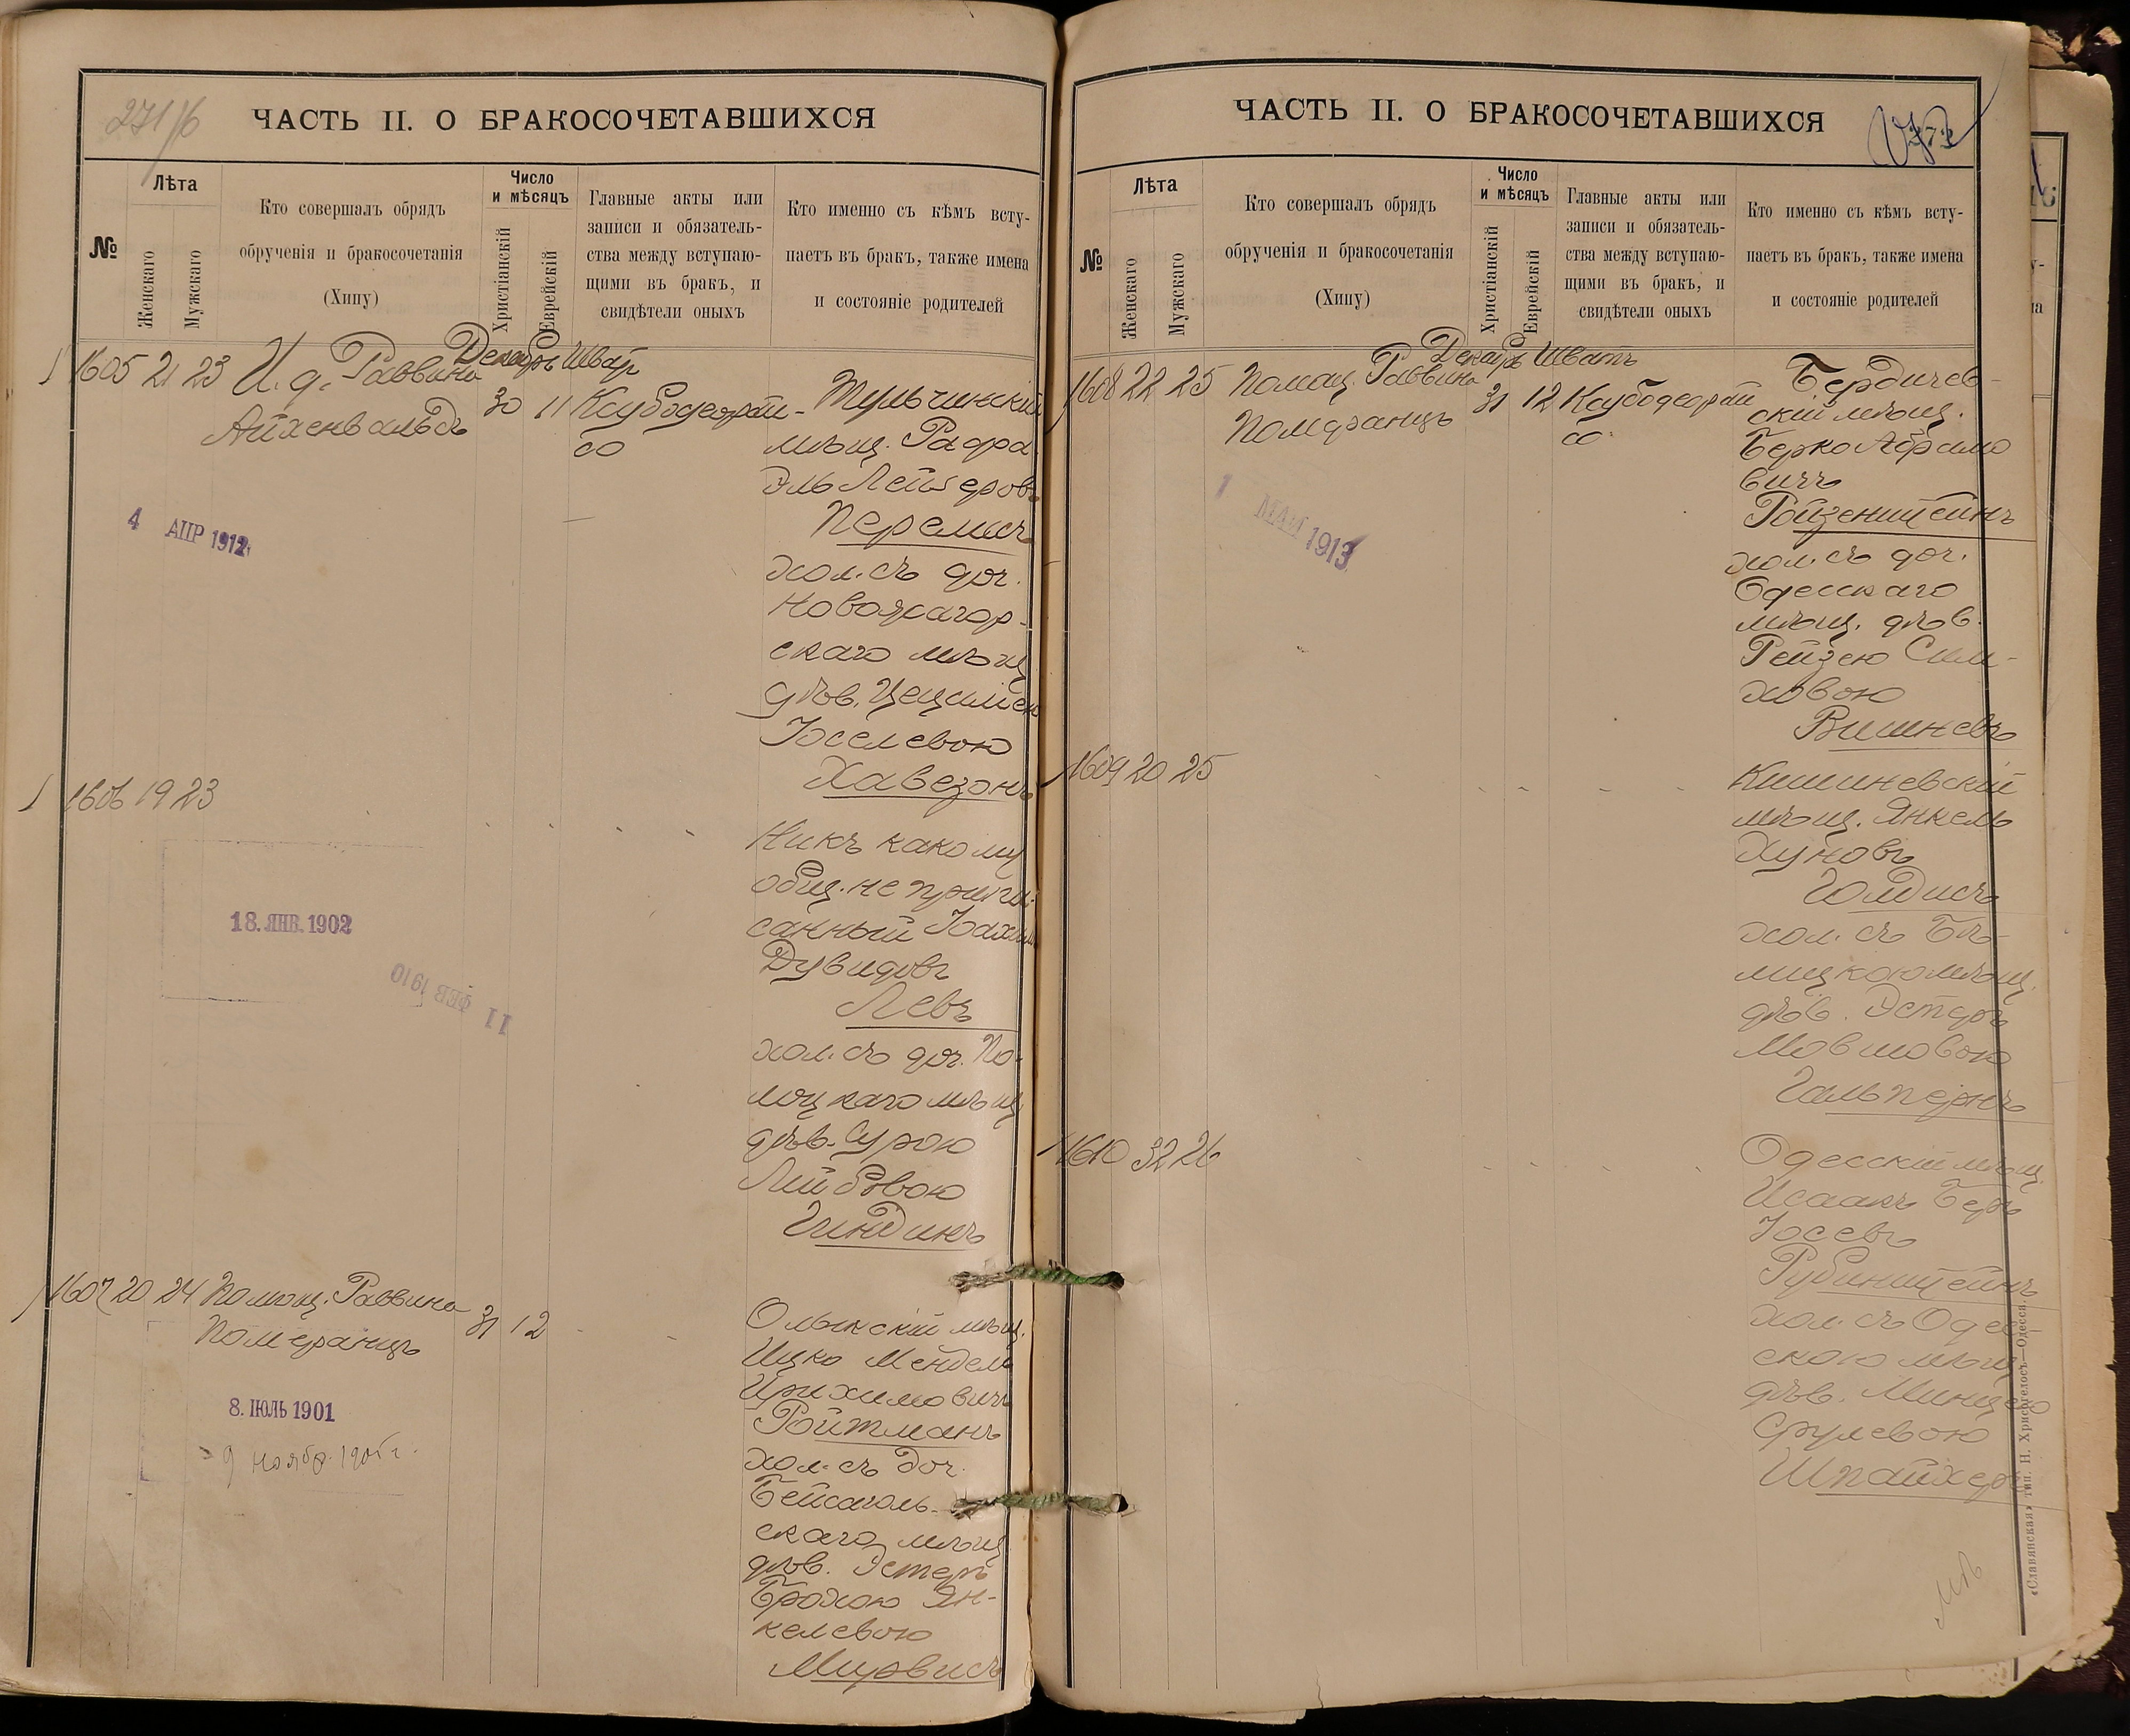 271/б
ЧАСТЬ II. О БРАКОСОЧЕТАВШИХСЯ
№
Лѣта
Женскаго
Мужскаго
Кто совершалъ обрядъ
обрученія и бракосочетанія
(Хипу)
Число
и мѣсяцъ
Христіанскій
Еврейскій
Главные акты или
записи и обязатель-
ства между вступаю-
щими въ бракъ, и
свидѣтели оныхъ
Кто именно съ кѣмъ всту-
паетъ въ бракъ, также имена
и состояніе родителей
Декабрь
1605 21 23 И. д. Раввина
Айхенвальдъ
30 11
Тульчинскій
мѣщ. Рафа
эль Лейзеровъ
Перемисъ
хол. съ доч.
скаго мѣщ
дѣв.
Іоселевою
Хавезонъ
4 АПР 1912
1606 19 23
Никъ какому
общ. не припи
санный
Дувидовъ
Левъ
хол. съ доч. По-
лоцкаго мѣщ
дѣв. Сурою
Лейбовою
Гиндинъ
18. ЯНВ. 1902
11 ФЕВ 1910
1607 20 24 Помощ. Раввина
Померанцъ
31 12
Олыкскій мѣщ.
Ицко Мендель
Ройтманъ
хол. съ доч.
Бейсаголь-
скаго мѣщ
дѣв. Эстеръ
Брохою Ян-
келевою
Мирвисъ
8. ІЮЛЬ 1901
9 ноябр. 1905 г.
ЧАСТЬ II. О БРАКОСОЧЕТАВШИХСЯ
№
Лѣта
Женскаго
Мужскаго
Кто совершалъ обрядъ
обрученія и бракосочетанія
(Хипу)
Число
и мѣсяцъ
Христіанскій
Еврейскій
Главные акты или
записи и обязатель-
ства между вступаю-
щими въ бракъ, и
свидѣтели оныхъ
Кто именно съ кѣмъ всту-
паетъ въ бракъ, также имена
и состояніе родителей
Декабрь Шватъ
1608 22 25 Помощ. Раввина
Померанцъ
31 12
Бердичев-
скій мѣщ.
Берко Абрамо
вичъ
Ройзенштейнъ
хол. съ доч.
Одесскаго
мѣщ. дѣв.
Рейзею Сим-
ховою
Вишневъ
1 МАЙ 1913
1609 20 25
Кишиневскій
мѣщ. Янкель
Хуновъ
Голдисъ
хол. съ Бѣ-
лицкою мѣщ.
дѣв. Эстеръ
Мовшовою
Гальпернъ
1610 32 26
Одесскій мѣщ.
Исаакъ Беръ
Іосевъ
Рубинштейнъ
хол. съ Одес-
скою мѣщ
дѣв. Минцею
Срулевою
Шпайхеръ
«Славянская» тип. Н. Хрисогелосъ—Одесса.